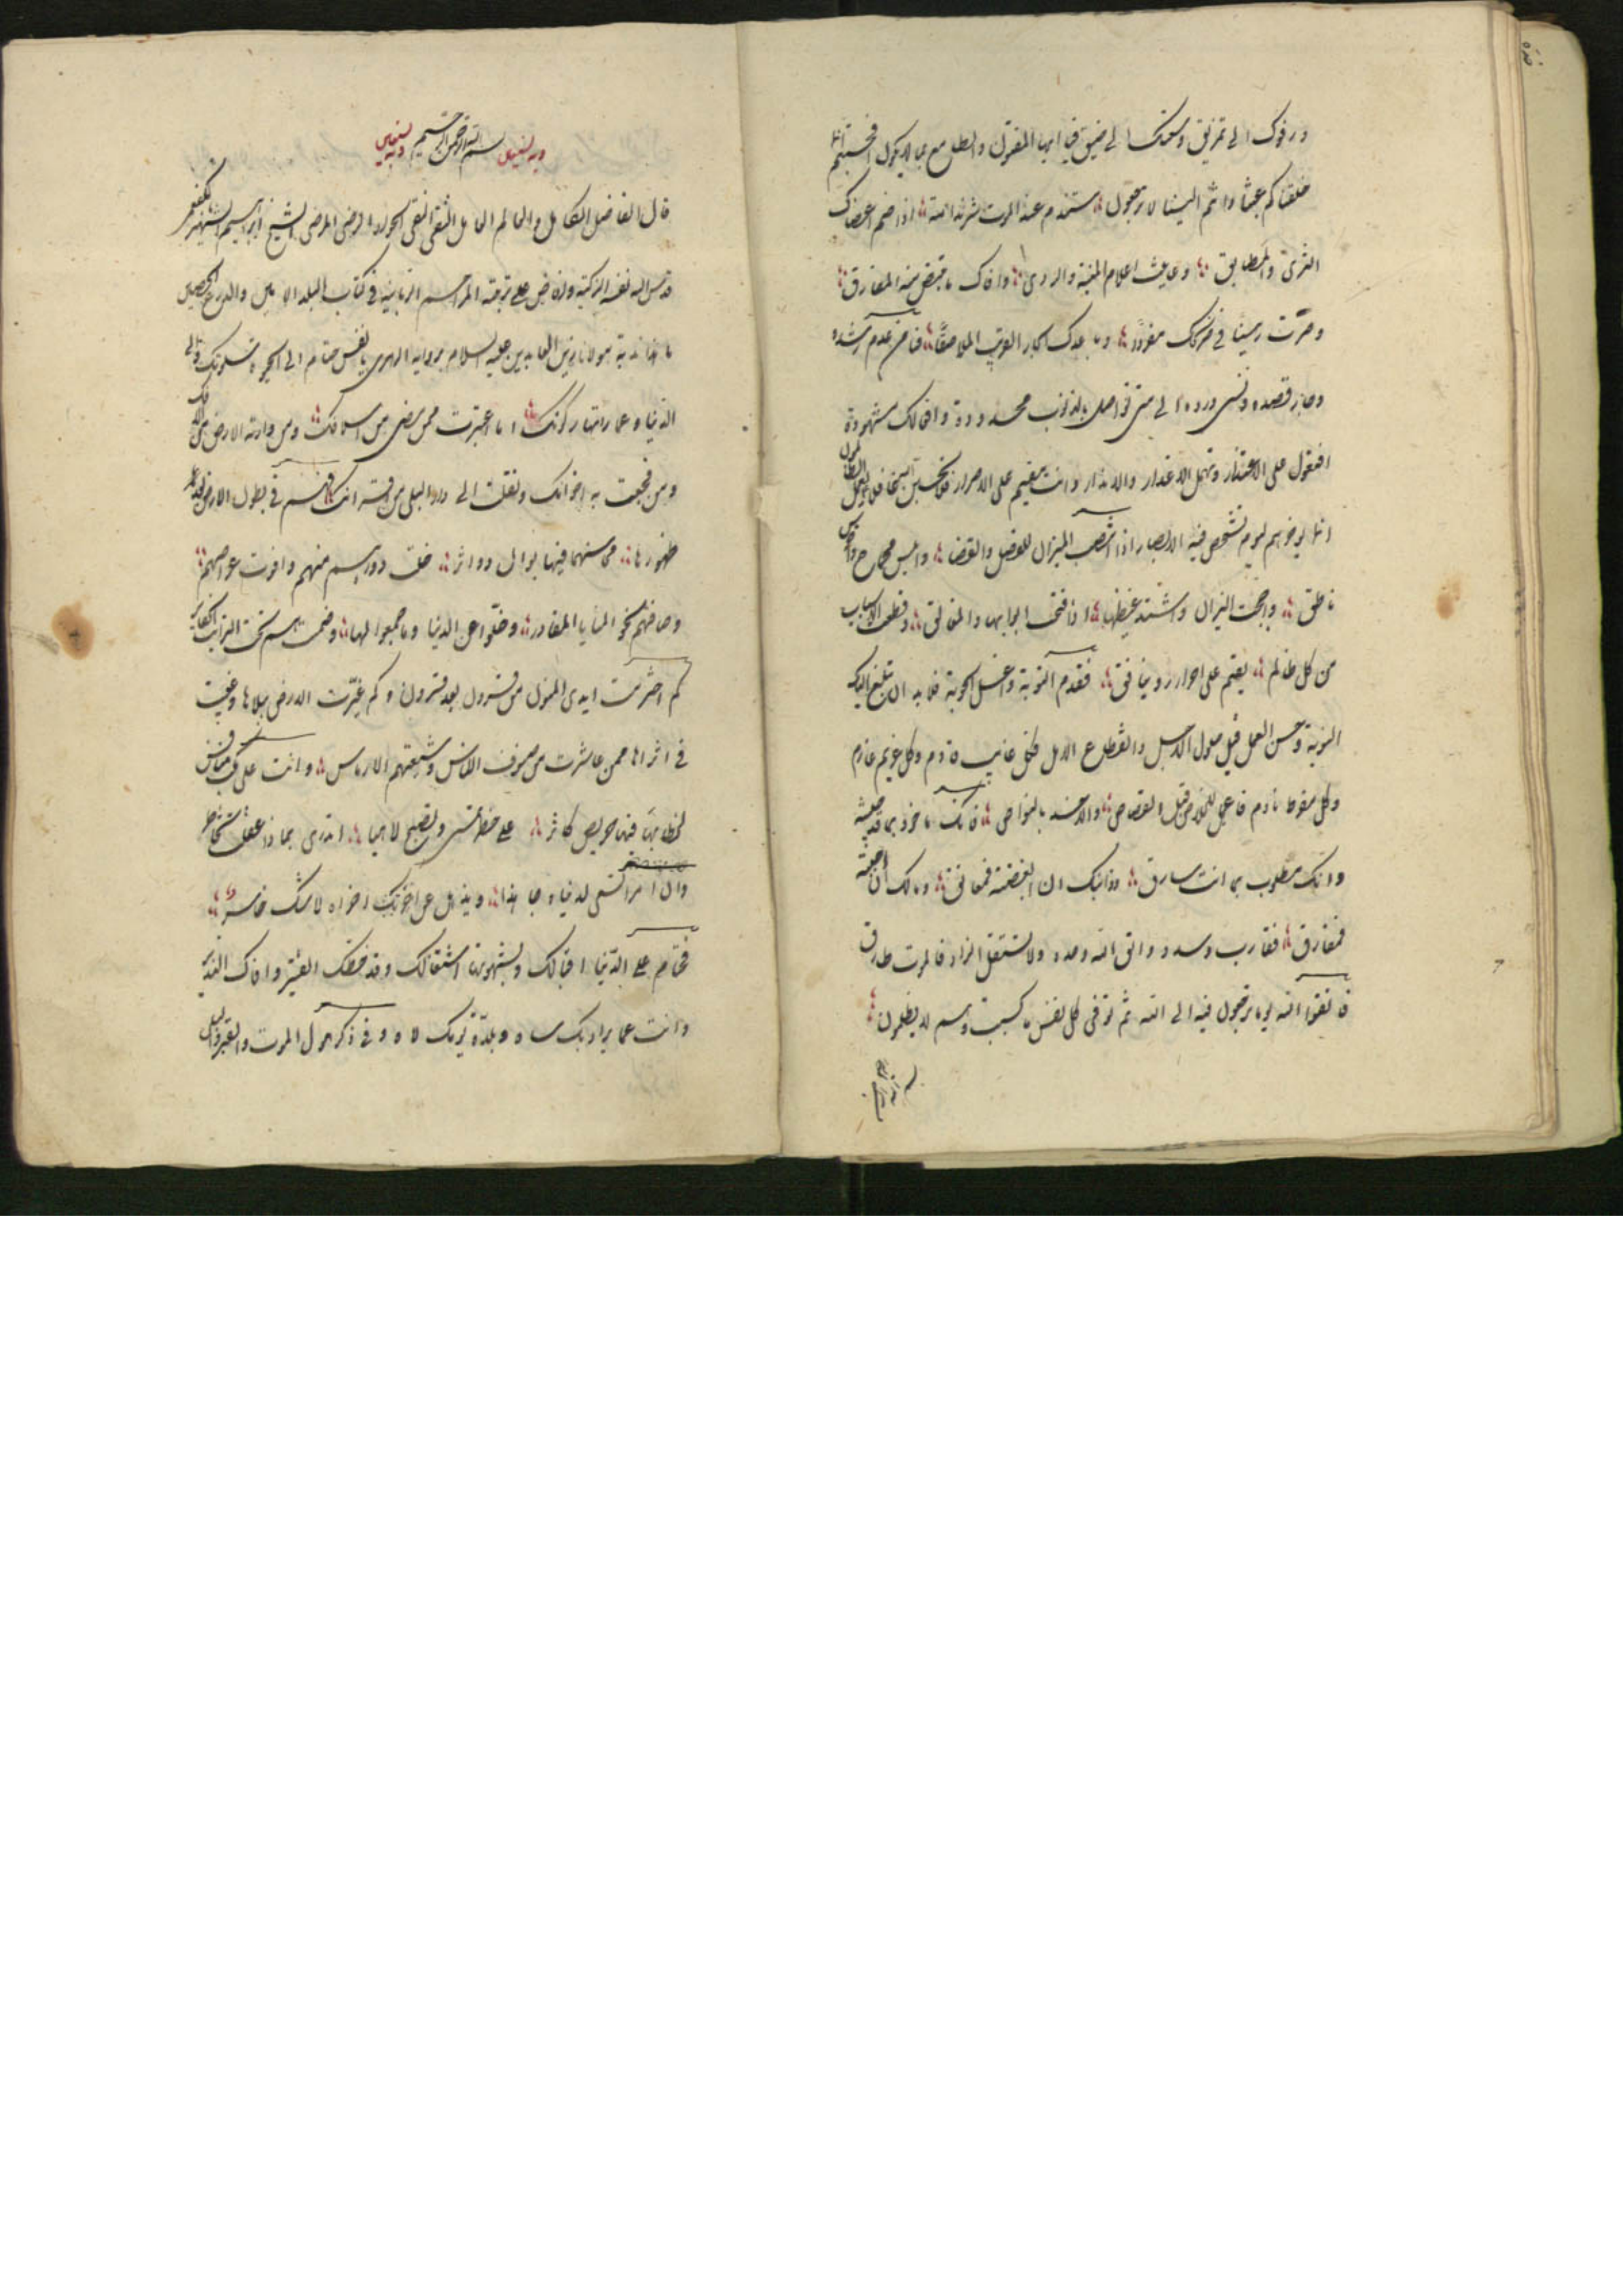 ورفوك الى تمزيق وسعتك الى ضيق فيا ايها المفتول والطلع مع ما لا يكون افحسبتم انما
خلقناكم عبثا وانكم الينا لا ترجعون ستندم عند الموت شر ندامة اذا ضم اعضاك
الثرى والمطابق وعاينت اعلام المنية والردى ووافاك ما تبيض منه المفارق
وصرت رهينا في ضريحك مفردا وباعدك الجار القريب الملاصق فيا من عدم رشده
وجار قصده ونسى ورده الى متى تواصل بالذنوب واوقاتك محدودة وافعالك مشهودة
افتعول على الاعتذار وتهمل الاعذار والانذار وانت مقيم على الاصرار ولا تحسبن الله غافلا عما يعمل الظالمون
انما يؤخرهم ليوم تشخص فيه الابصار اذا نصب الميزان للفصل والقضا وابلس محجاج واخرس
ناطق واججت النيران واشتد غيظها اذا فتحت ابوابها والمغالق وقطعت الاسباب
من كل ظالم يقيم على اصراره وينافق فقدم التوبة واغسل الحوبة فلا بد ان تبلغ اليك
النوبة وحسن العمل قبل حلول الاجل وانقطاع الامل فكل غائب قادم وكل غريم غارم
وكل مفرط نادم فاعمل للخلاص قبل القصاص والاخذ بالنواص فانك ماخوذ بما قد جنيته
وانك مطلوب بما انت سارق وذنبك ان ابغضته فمعانق ومالك ان احببته
فمفارق فقارب وسدد واتق الله وحده ولا تستقل الزاد فالموت طارق
فاتقوا الله يوما ترجعون فيه الى الله ثم توفى كل نفس ما كسبت وهم لا يظلمون
بسم الله الرحمن
وبه نستعين بسم الله الرحمن الرحيم وبه نستعين
قال الفاضل الكامل والعالم العامل الثقى النقى الجواد الرضى المرضى الشيخ ابراهيم الشهير بالكفعمى
قدس الله نفسه الزكية وافاض على تربته المراحم الربانية في كتاب البلد الامين والدرع الحصين
ما هذا ندبة مولانا زين العابدين عليه السلام برواية الزهرى يا نفس حتام الى الحيوة سكونك والى
الدنيا وعمارتها ركونك اما اعتبرت بمن مضى من اسلافك ومن وارته الارض من الافك
ومن فجعت به اخوانك ونقلت الى دار البلى من اقرانك فهم في بطون الارض بعد
ظهورها محاسنهم فيها بوال دواثر خلت دورهم منهم واقوت عراصهم
وساقتهم نحو المنايا المقادر وخلوا عن الدنيا وما جمعوا لها وضمتهم تحت التراب الحفاير
كم اخترمت ايدى المنون من قرون بعد قرون وكم غيرت الارض ببلاها وغيبت
في ثراها ممن عاشرت من صنوف الناس وشيعتهم الى الارماس وانت على الدنيا مكب منافس
لخطابها فيها حريص مكاثر على خطر تمسى وتصبح لاهيا اتدرى بماذا لو عقلت تخاطر
وان امرا يسعى لدنياه جاهدا ويذهل عن اخراه لا شك خاسر
فحتام على الدنيا اقبالك وبشهوتها اشتغالك وقد وخطك القتير ووافاك النذير
وانت عما يراد بك ساه وبلذة يومك لاه وفي ذكر هول الموت والقبر والبلى